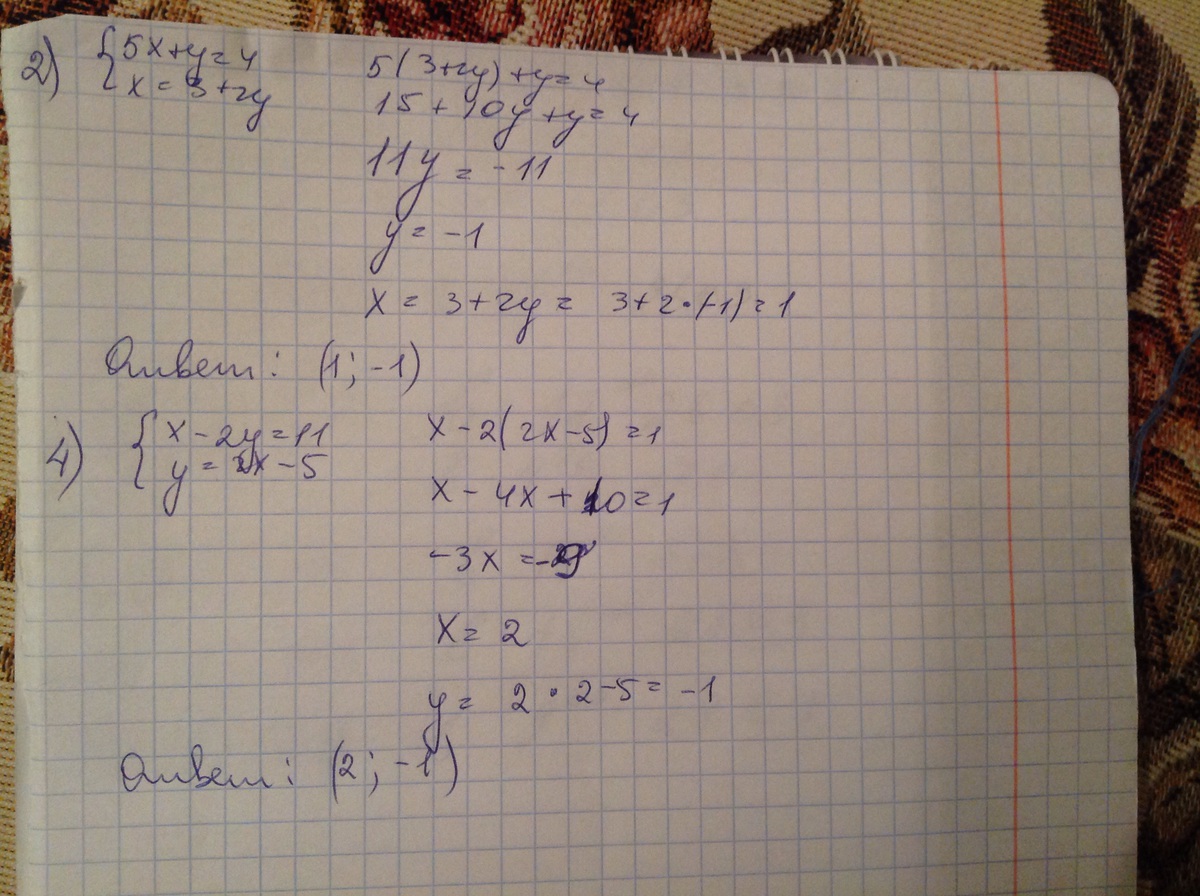 2) { 5x+y=4
x=3+2y
5(3+2y)+y=4
15+10y+y=4
11y=-11
y=-1
x=3+2y=3+2·(-1)=1
Ответ: (1; -1)
4) { x-2y=11
y=2x-5
x-2(2x-5)=1
x-4x+10=1
-3x=-9
x=2
y=2·2-5=-1
Ответ: (2; -1)